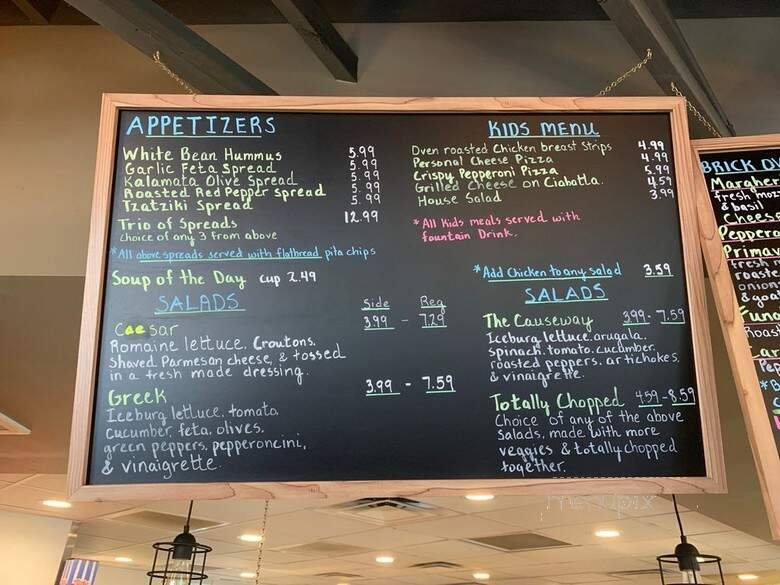 APPETIZERS
White Bean Hummus 5.99
Garlic Feta Spread 5.99
Kalamata Olive Spread 5.99
Roasted Red Pepper spread 5.99
Tzatziki Spread 5.99
Trio of Spreads 12.99
Choice of any 3 from above
*All above spreads served with flatbread pita chips
Soup of the Day cup 2.49
SALADS
Side Reg
Caesar 3.99 - 7.29
Romaine lettuce. Croutons.
Shaved Parmesan cheese, & tossed
in a fresh made dressing.
Greek 3.99 - 7.59
Iceburg lettuce, tomato,
cucumber, feta, olives,
green peppers, pepperoncini,
& vinaigrette.
KIDS MENU
Oven roasted Chicken breast Strips 4.99
Personal Cheese Pizza 4.99
Crispy Pepperoni Pizza 5.99
Grilled Cheese on Ciabatta. 4.59
House Salad 3.99
*All Kids meals served with
fountain Drink.
*Add Chicken to any salad 3.59
SALADS
The Causeway 3.99 - 7.59
Iceburg lettuce, arugala,
spinach, tomato, cucumber,
roasted peppers, artichokes,
& vinaigrette.
Totally Chopped 4.59 - 8.59
Choice of any of the above
Salads, made with more
veggies & totally chopped
together.
BRICK
Margher
fresh mo
& basil
Cheese
Peppero
Primav
fresh m
roaste
onion
& go
Tuna
Roas
Pep
menupix